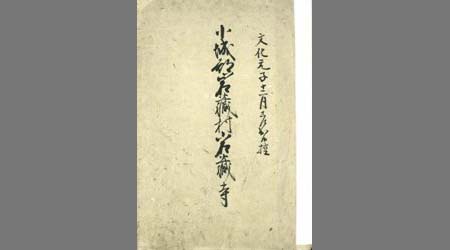 文化元子十二月 控
小城郡岩藏村岩藏寺